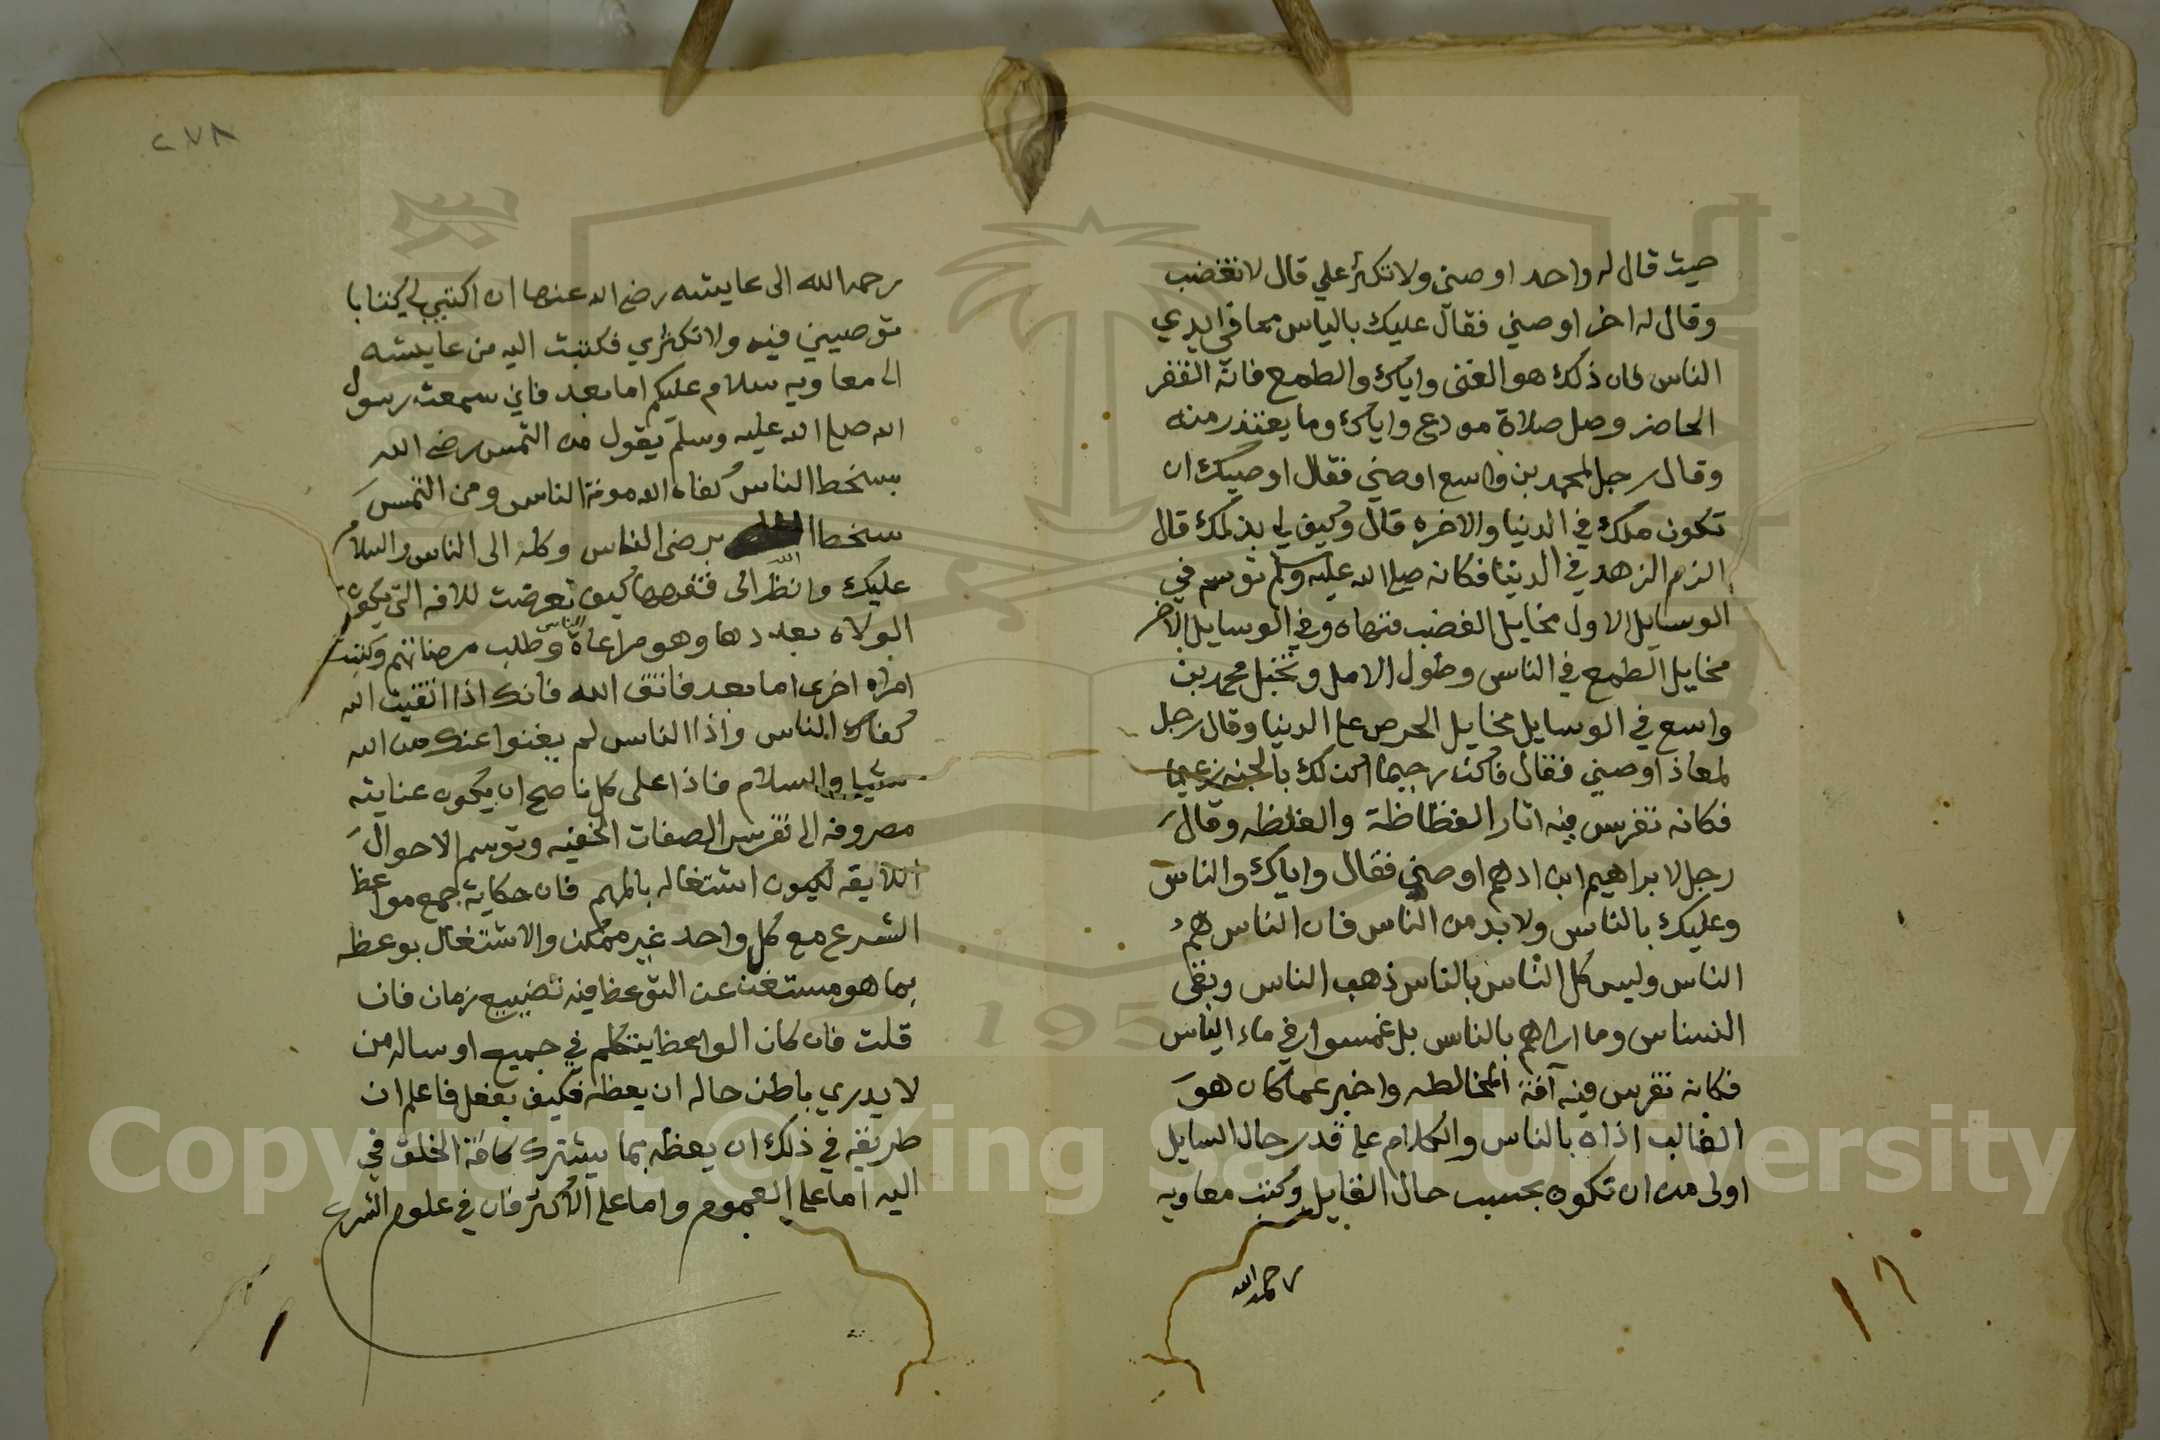 حيث قال له واحد اوصني ولا تكثر علي قال لا تغضب
وقال له اخر اوصني فقال عليك بالياس مما في ايدي
الناس فان ذلك هو الغنى واياك والطمع فانه الفقر
الحاضر وصل صلاة مودع واياك وما يعتذر منه
وقال رجل لمحمد بن واسع اوصني فقال اوصيك ان
تكون ملك في الدنيا والاخره قال وكيف لي بذلك قال
الزم الزهد في الدنيا فكانه صلى الله عليه وسلم توسم في
الوسايل الاول مخايل الغضب فنهاه وفي الوسايل الاخر
مخايل الطمع في الناس وطول الامل وتخيل محمد بن
واسع في الوسايل مخايل الحرص على الدنيا وقال رجل
لمعاذ اوصني فقال فاكن رحيما اكن لك بالجنه زعيما
فكانه تفرس فيه اثار الفظاظة والغلظه وقال
رجل لابراهيم ابن ادهم اوصني فقال واياك والناس
وعليك بالناس ولا بد من الناس فان الناس هم
الناس وليس كل الناس بالناس ذهب الناس وبقى
النسناس وما اراهم بالناس بل غمسوا في ماء الياس
فكانه تفرس فيه آفة المخالطه واخبر عما كان هو
الغالب اذاه بالناس والكلام على قدر حال السايل
اولى من ان تكون بحسب حال القايل وكتب معاويه
رحمه الله
٢٧٨
رحمه الله الى عايشه رضي الله عنها ان اكتبي لي كتابا
توصيني فيه ولا تكثري فكتبت اليه من عايشه
الى معاويه سلام عليكم اما بعد فاني سمعت رسول
الله صلى الله عليه وسلم يقول من التمس رضى الله
بسخط الناس كفاه الله مونة الناس ومن التمس
سخط الله برضى الناس وكله الى الناس والسلام
عليك وانظر الى فقهها كيف تعرضت للافه التي يكون
الولاه بصددها وهو مراعاة الناس وطلب مرضاتهم وكتبت
امراه اخرى اما بعد فاتق الله فانك اذا اتقيت الله
كفاك الناس واذا الناس لم يغنوا عنك من الله
شيا والسلام فاذا على كل ناصح ان يكون عنايته
مصروفه الى تفرس الصفات الخفيه وتوسم الاحوال
اللايقه ليكون اشتغاله بالمهم فان حكاية جمع مواعظ
الشرع مع كل واحد غير ممكن والاشتغال بوعظه
بما هو مستغن عن التوعظ فيه تضييع زمان فان
قلت فان كان الواعظ يتكلم في جميع او ساله من
لا يدري باطن حاله ان يعظه فكيف يفعل فاعلم ان
طريقه في ذلك ان يعظه بما يشترك كافة الخلق في
اليه اما على العموم واما على الاكثر فان في علوم الشرع
Copyright © King Saud University
195